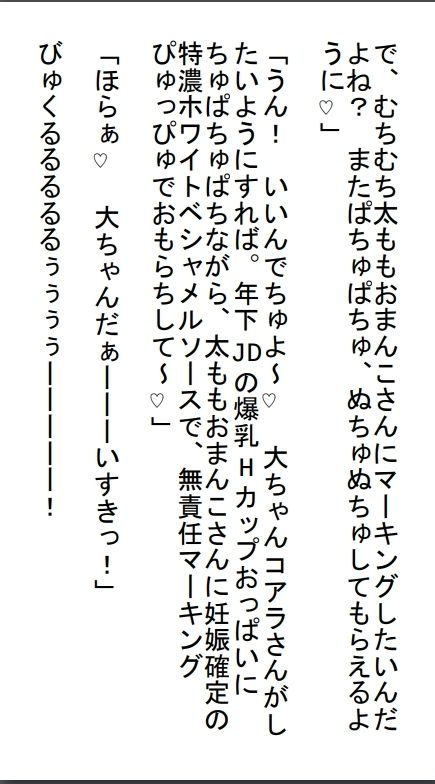 で、むちむち太ももおまんこさんにマーキングしたいんだ
よね？　またぱちゅぱちゅ、ぬちゅぬちゅしてもらえるよ
うに♡」
「うん！　いいんでちゅよ～♡　大ちゃんコアラさんがし
たいようにすれば。年下JDの爆乳Hカップおっぱいに
ちゅぱちゅぱちながら、太ももおまんこさんに妊娠確定の
特濃ホワイトベシャメルソースで、無責任マーキング
ぴゅっぴゅでおもらちして～♡」
「ほらぁ♡　大ちゃんだぁーーーいすきっ！」
びゅくるるるるるぅぅぅぅーーーーー！